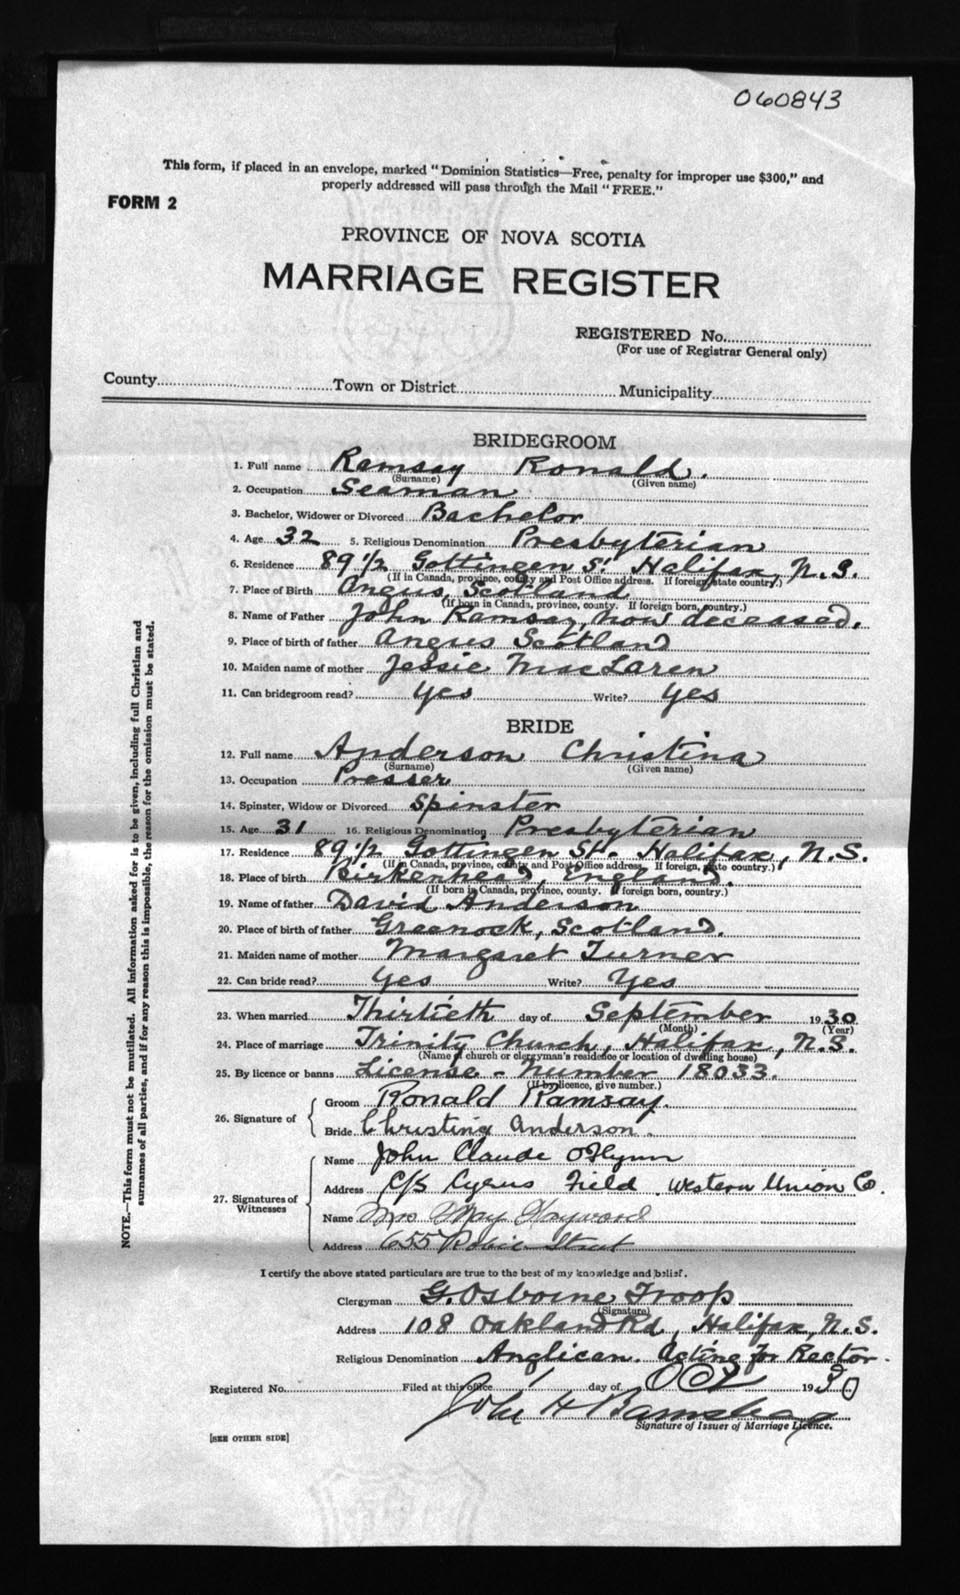 060843
This form, if placed in an envelope, marked "Dominion Statistics—Free, penalty for improper use $300," and
properly addressed will pass through the Mail "FREE."
FORM 2
PROVINCE OF NOVA SCOTIA
MARRIAGE REGISTER
REGISTERED No.
(For use of Registrar General only)
County Town or District Municipality
BRIDEGROOM
1. Full name Ramsay Ronald.
(Surname) (Given name)
2. Occupation Seaman
3. Bachelor, Widower or Divorced Bachelor
4. Age 32 5. Religious Denomination Presbyterian
6. Residence 89 1/2 Gottingen St. Halifax, N.S.
(If in Canada, province, county and Post Office address. If foreign, state country.)
7. Place of Birth Angus, Scotland
(If born in Canada, province, county. If foreign born, country.)
8. Name of Father John Ramsay, now deceased.
9. Place of birth of father Angus Scotland
10. Maiden name of mother Jessie MacLaren
11. Can bridegroom read? Yes Write? Yes
BRIDE
12. Full name Anderson Christina
(Surname) (Given name)
13. Occupation Presser
14. Spinster, Widow or Divorced Spinster
15. Age 31 16. Religious Denomination Presbyterian
17. Residence 89 1/2 Gottingen St. Halifax, N.S.
(If in Canada, province, county and Post Office address. If foreign, state country.)
18. Place of birth Birkenhead, England.
(If born in Canada, province, county. If foreign born, country.)
19. Name of father David Anderson
20. Place of birth of father Greenock, Scotland.
21. Maiden name of mother Margaret Turner
22. Can bride read? Yes Write? Yes
23. When married Thirtieth day of September 1930
(Month) (Year)
24. Place of marriage Trinity Church, Halifax, N.S.
(Name of church or clergyman's residence or location of dwelling house)
25. By licence or banns License - Number 18033.
(If by licence, give number.)
26. Signature of
Groom Ronald Ramsay.
Bride Christina Anderson.
27. Signatures of Witnesses
Name John Claude O'Flynn
Address C/S Cyrus Field Western Union Co.
Name Mrs May Hayward
Address 655 Robie Street
I certify the above stated particulars are true to the best of my knowledge and belief.
Clergyman G. Osborne Troop
(Signature)
Address 108 Oakland Rd, Halifax, N.S.
Religious Denomination Anglican. Acting for Rector.
Registered No. Filed at this office 1 day of Oct 1930
John H
Signature of Issuer of Marriage Licence.
[SEE OTHER SIDE]
NOTE.—This form must not be mutilated. All information asked for is to be given, including full Christian and
surnames of all parties, and if for any reason this is impossible, the reason for the omission must be stated.